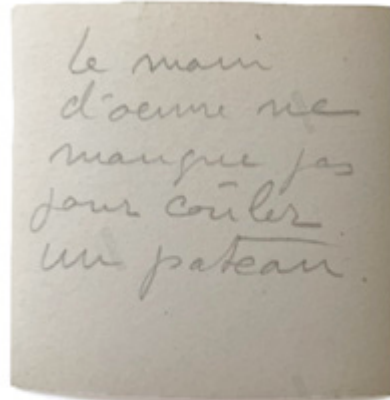 le main
d'oeuvre ne
manque pas
pour coûler
un pateau.